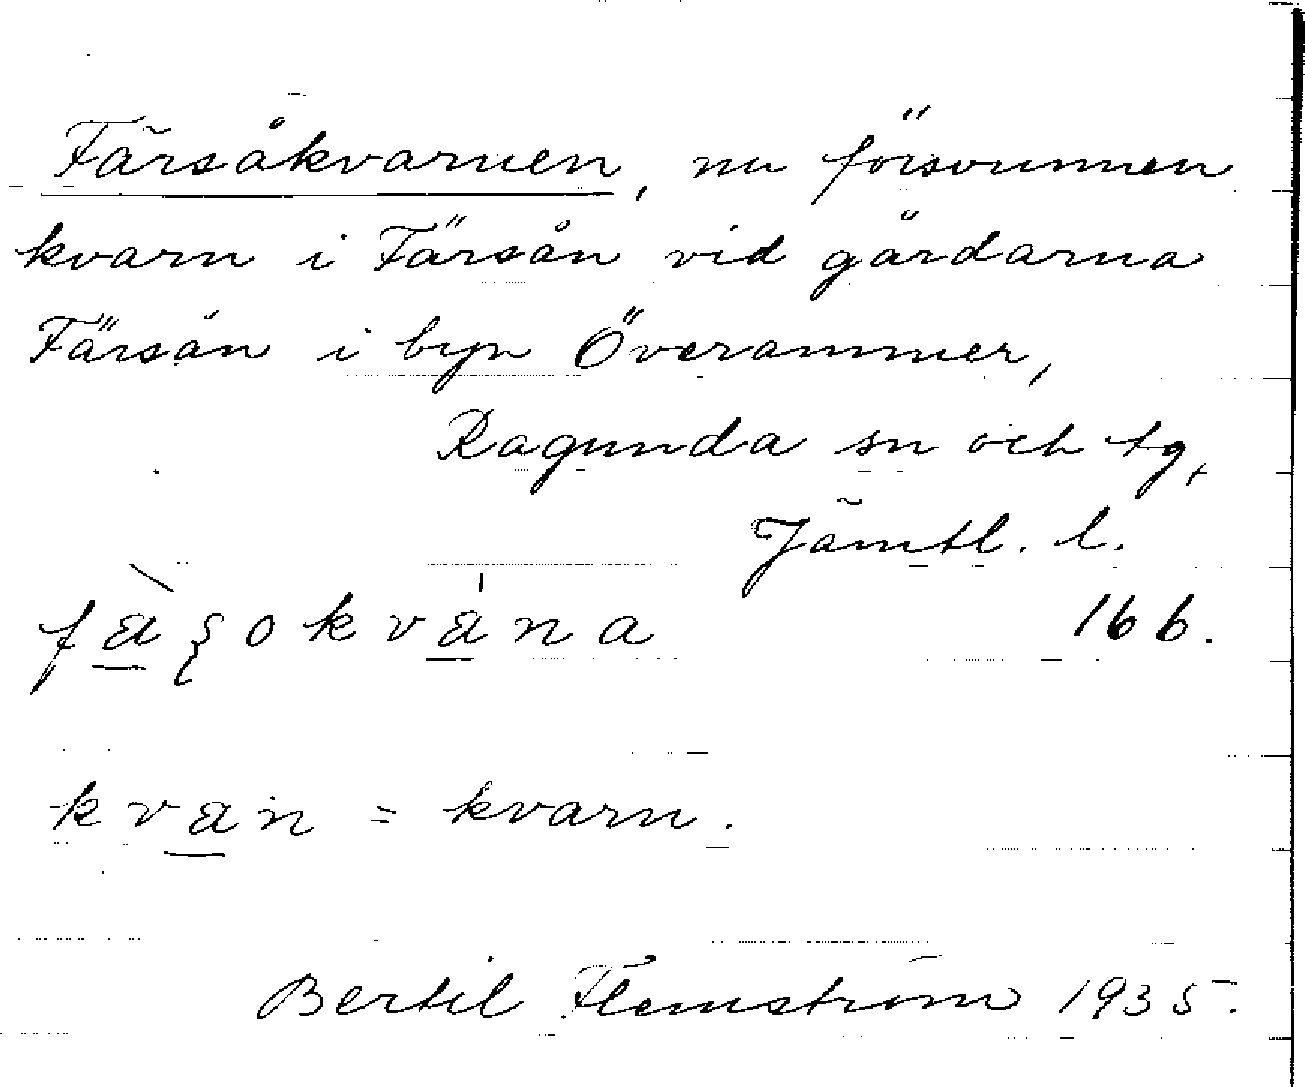 Färsåkvarnen, nu försvunnen
kvarn i Färsån vid gårdarna
Färsån i byn Överammer,
Ragunda sn och tg,
Jämtl. l.
fàʂokvána 16 b.
kvan = kvarn.
Bertil Flemström 1935.